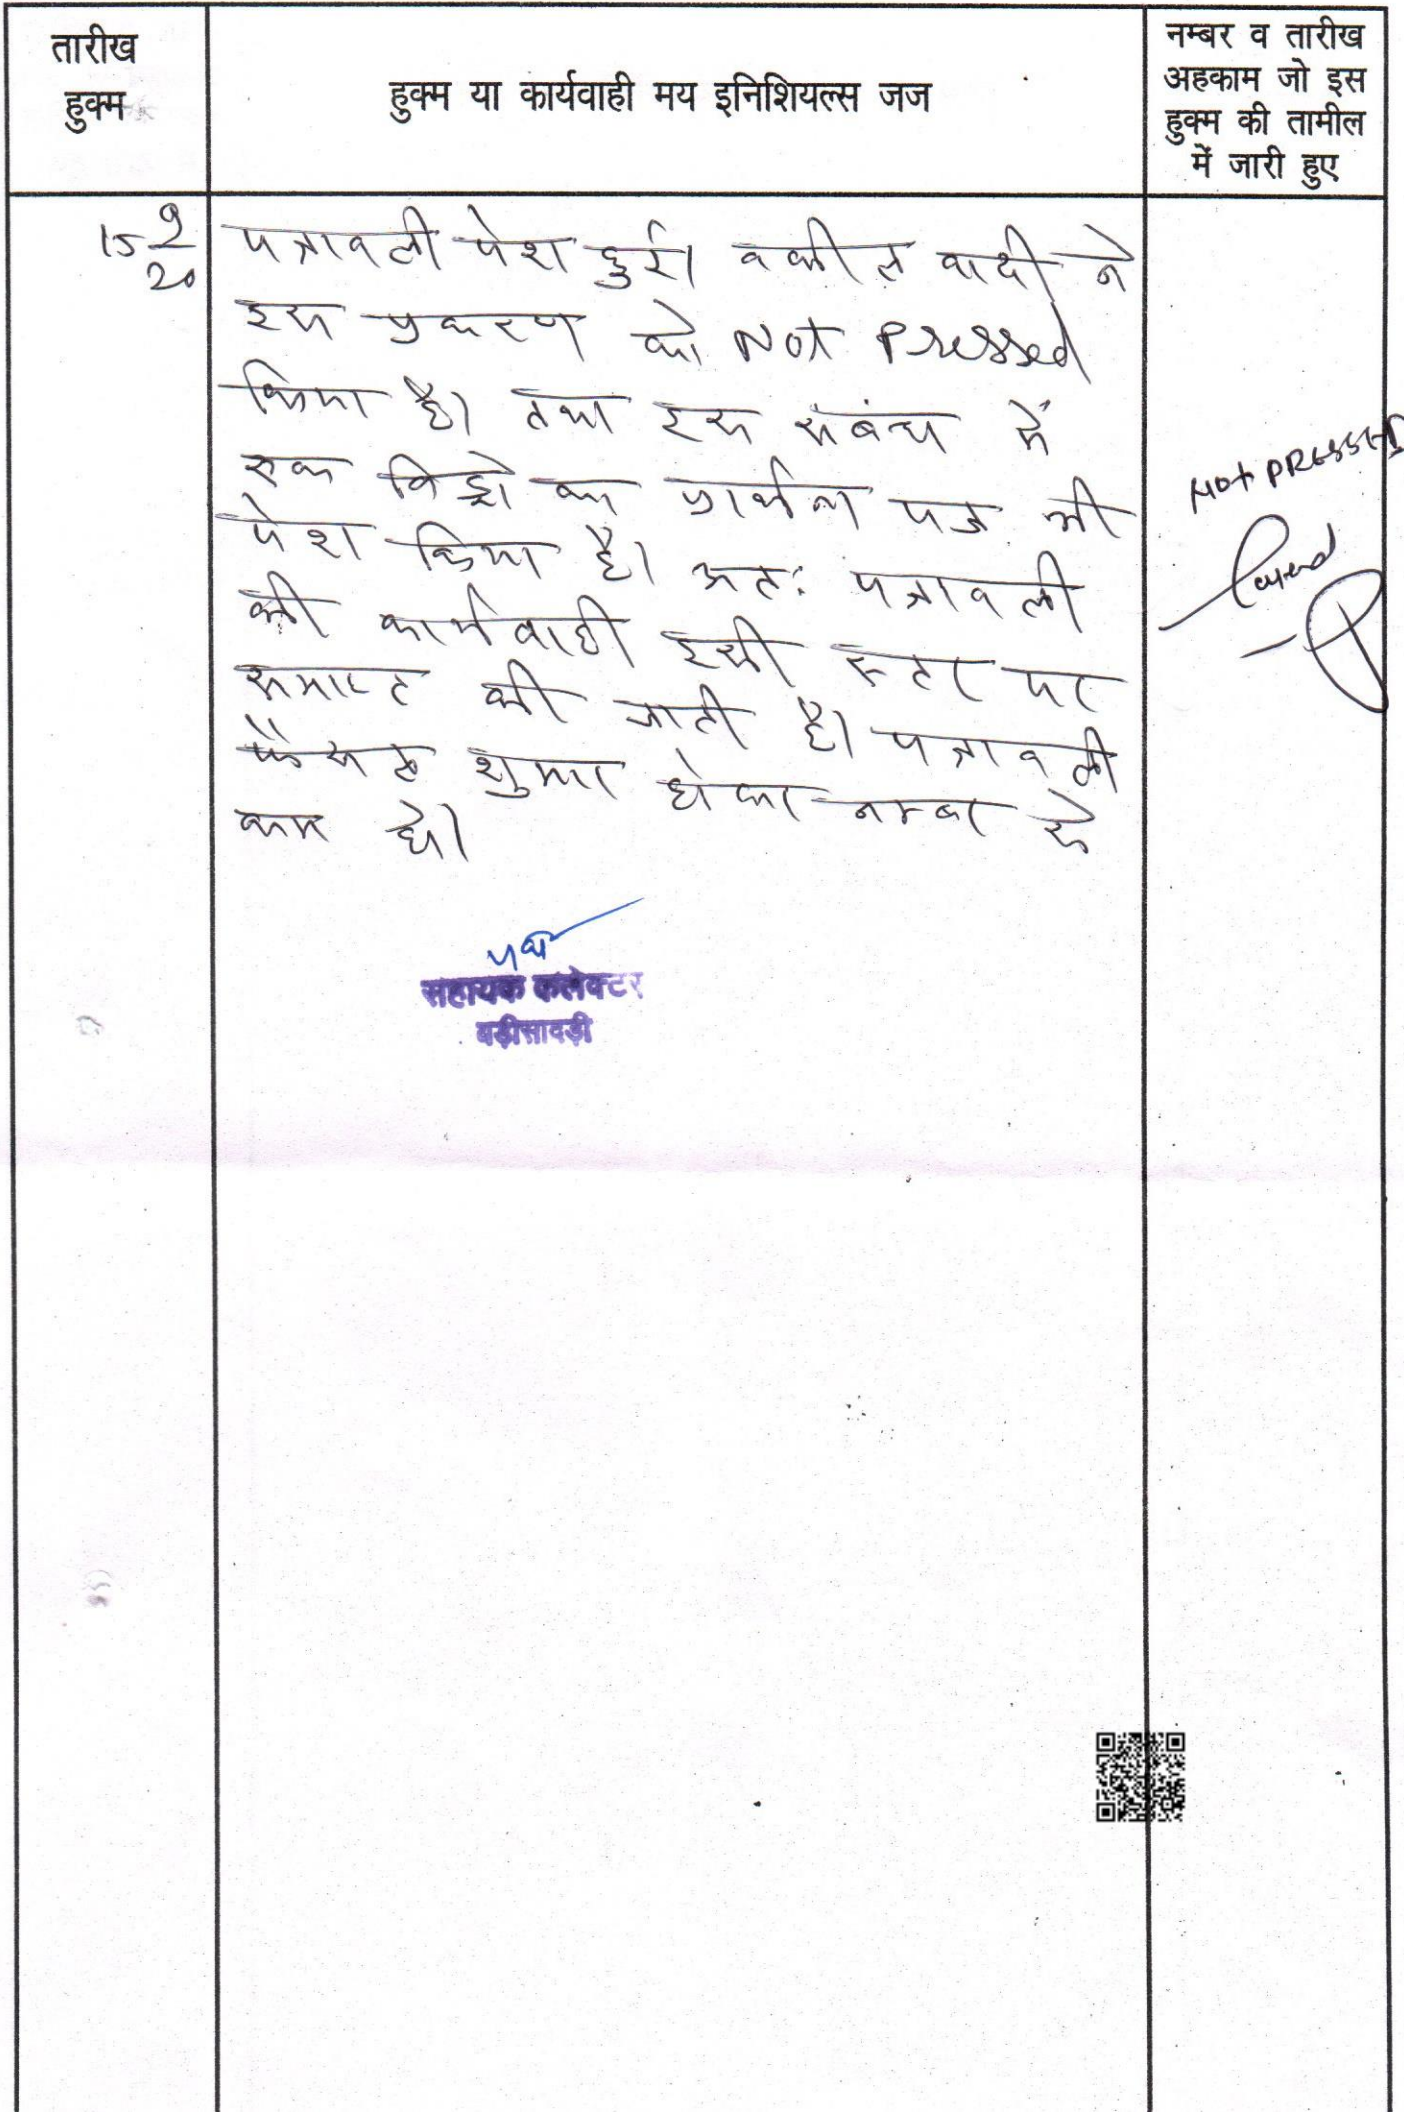 तारीख
हुक्म
हुक्म या कार्यवाही मय इनिशियल्स जज
नम्बर व तारीख
अहकाम जो इस
हुक्म की तामील
में जारी हुए
15 9/20
पत्रावली पेश हुई। वकील वादी ने
इस प्रकरण को Not Pressed
किया है। तथा इस संबंध में
एक विड्रो का प्रार्थना पत्र भी
पेश किया है। अतः पत्रावली
की कार्यवाही इसी स्टर पर
समाप्त की जाती है। पत्रावली
फैसल शुमार होकर नम्बर से
कम हो।
Not PRESSED
सहायक कलेक्टर
बड़ीसादड़ी